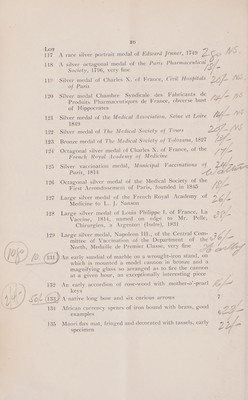 80
Lot
117 A rare silver portrait medal of Edward Jenner, 1748
118 A silver octagonal medal of the Paris Pharmaceutical
Society, 1796, very fine
119 Silver medal of Charles X. of France, Civil Hospitals
of Paris
120 Silver medal Chambre Syndicale des Fabricants de
Produits Pharmaceutiques de France, obverse bust
of Hippocrates
121 Silver medal of the Medical Association, Seine et Loire
1848
122 Silver medal of The Medical Society of Tours
123 Bronze medal of The Medical Society of Toulouse, 1827
124 Octagonal silver medal of Charles X. of France, of the
French Royal Academy of Medicine
125 Silver vaccination medal, Municipal Vaccinations of
Paris, 1814
126 Octagonal silver medal of the Medical Society of the
First Arrondissement of Paris, founded in 1845
127 Large silver medal of the French Royal Academy of
Medicine to L. J. Sanson
128 Large silver medal of Louis Philippe I. of France, La
Vaccine, 1814, named on edge to Mr. Pellé,
Chirurgien, a Argentan (Indre), 1831
129 Large silver medal, Napoleon III., of the Central Com-
mittee of Vaccination of the Department of the
North, Medaille de Premier Classe, very fine
131 An early sundial of marble on a wrought-iron stand, on
which is mounted a model cannon in bronze and a
magnifying glass so arranged as to fire the cannon
at a given hour, an exceptionally interesting piece
132 An early accordion of rose-wood with mother-o'-pearl
keys
133 A native long bow and six curious arrows 7
134 African currency spears of iron bound with brass, good
examples 6
135 Maori flax mat, fringed and decorated with tassels, early
specimen